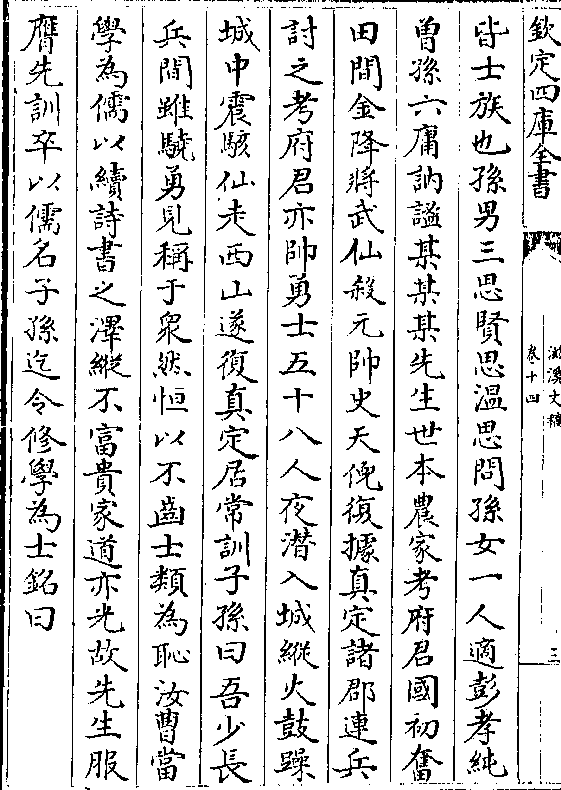 欽定四庫全書
滋溪文稿
卷十四
三
皆士族也孫男三思賢思溫思問孫女一人適彭孝純
曾孫六庸訥謐某某某先生世本農家考府君國初奮
田間金降將武仙殺元帥史天倪復據真定諸郡連兵
討之考府君亦帥勇士五十八人夜潛入城縱火鼓躁
城中震駭仙走西山遂復真定居常訓子孫曰吾少長
兵間雖驍勇見稱于衆然恒以不齒士類為恥汝曹當
學為儒以續詩書之澤縱不富貴家道亦光故先生服
膺先訓卒以儒名子孫迄今修學為士銘曰